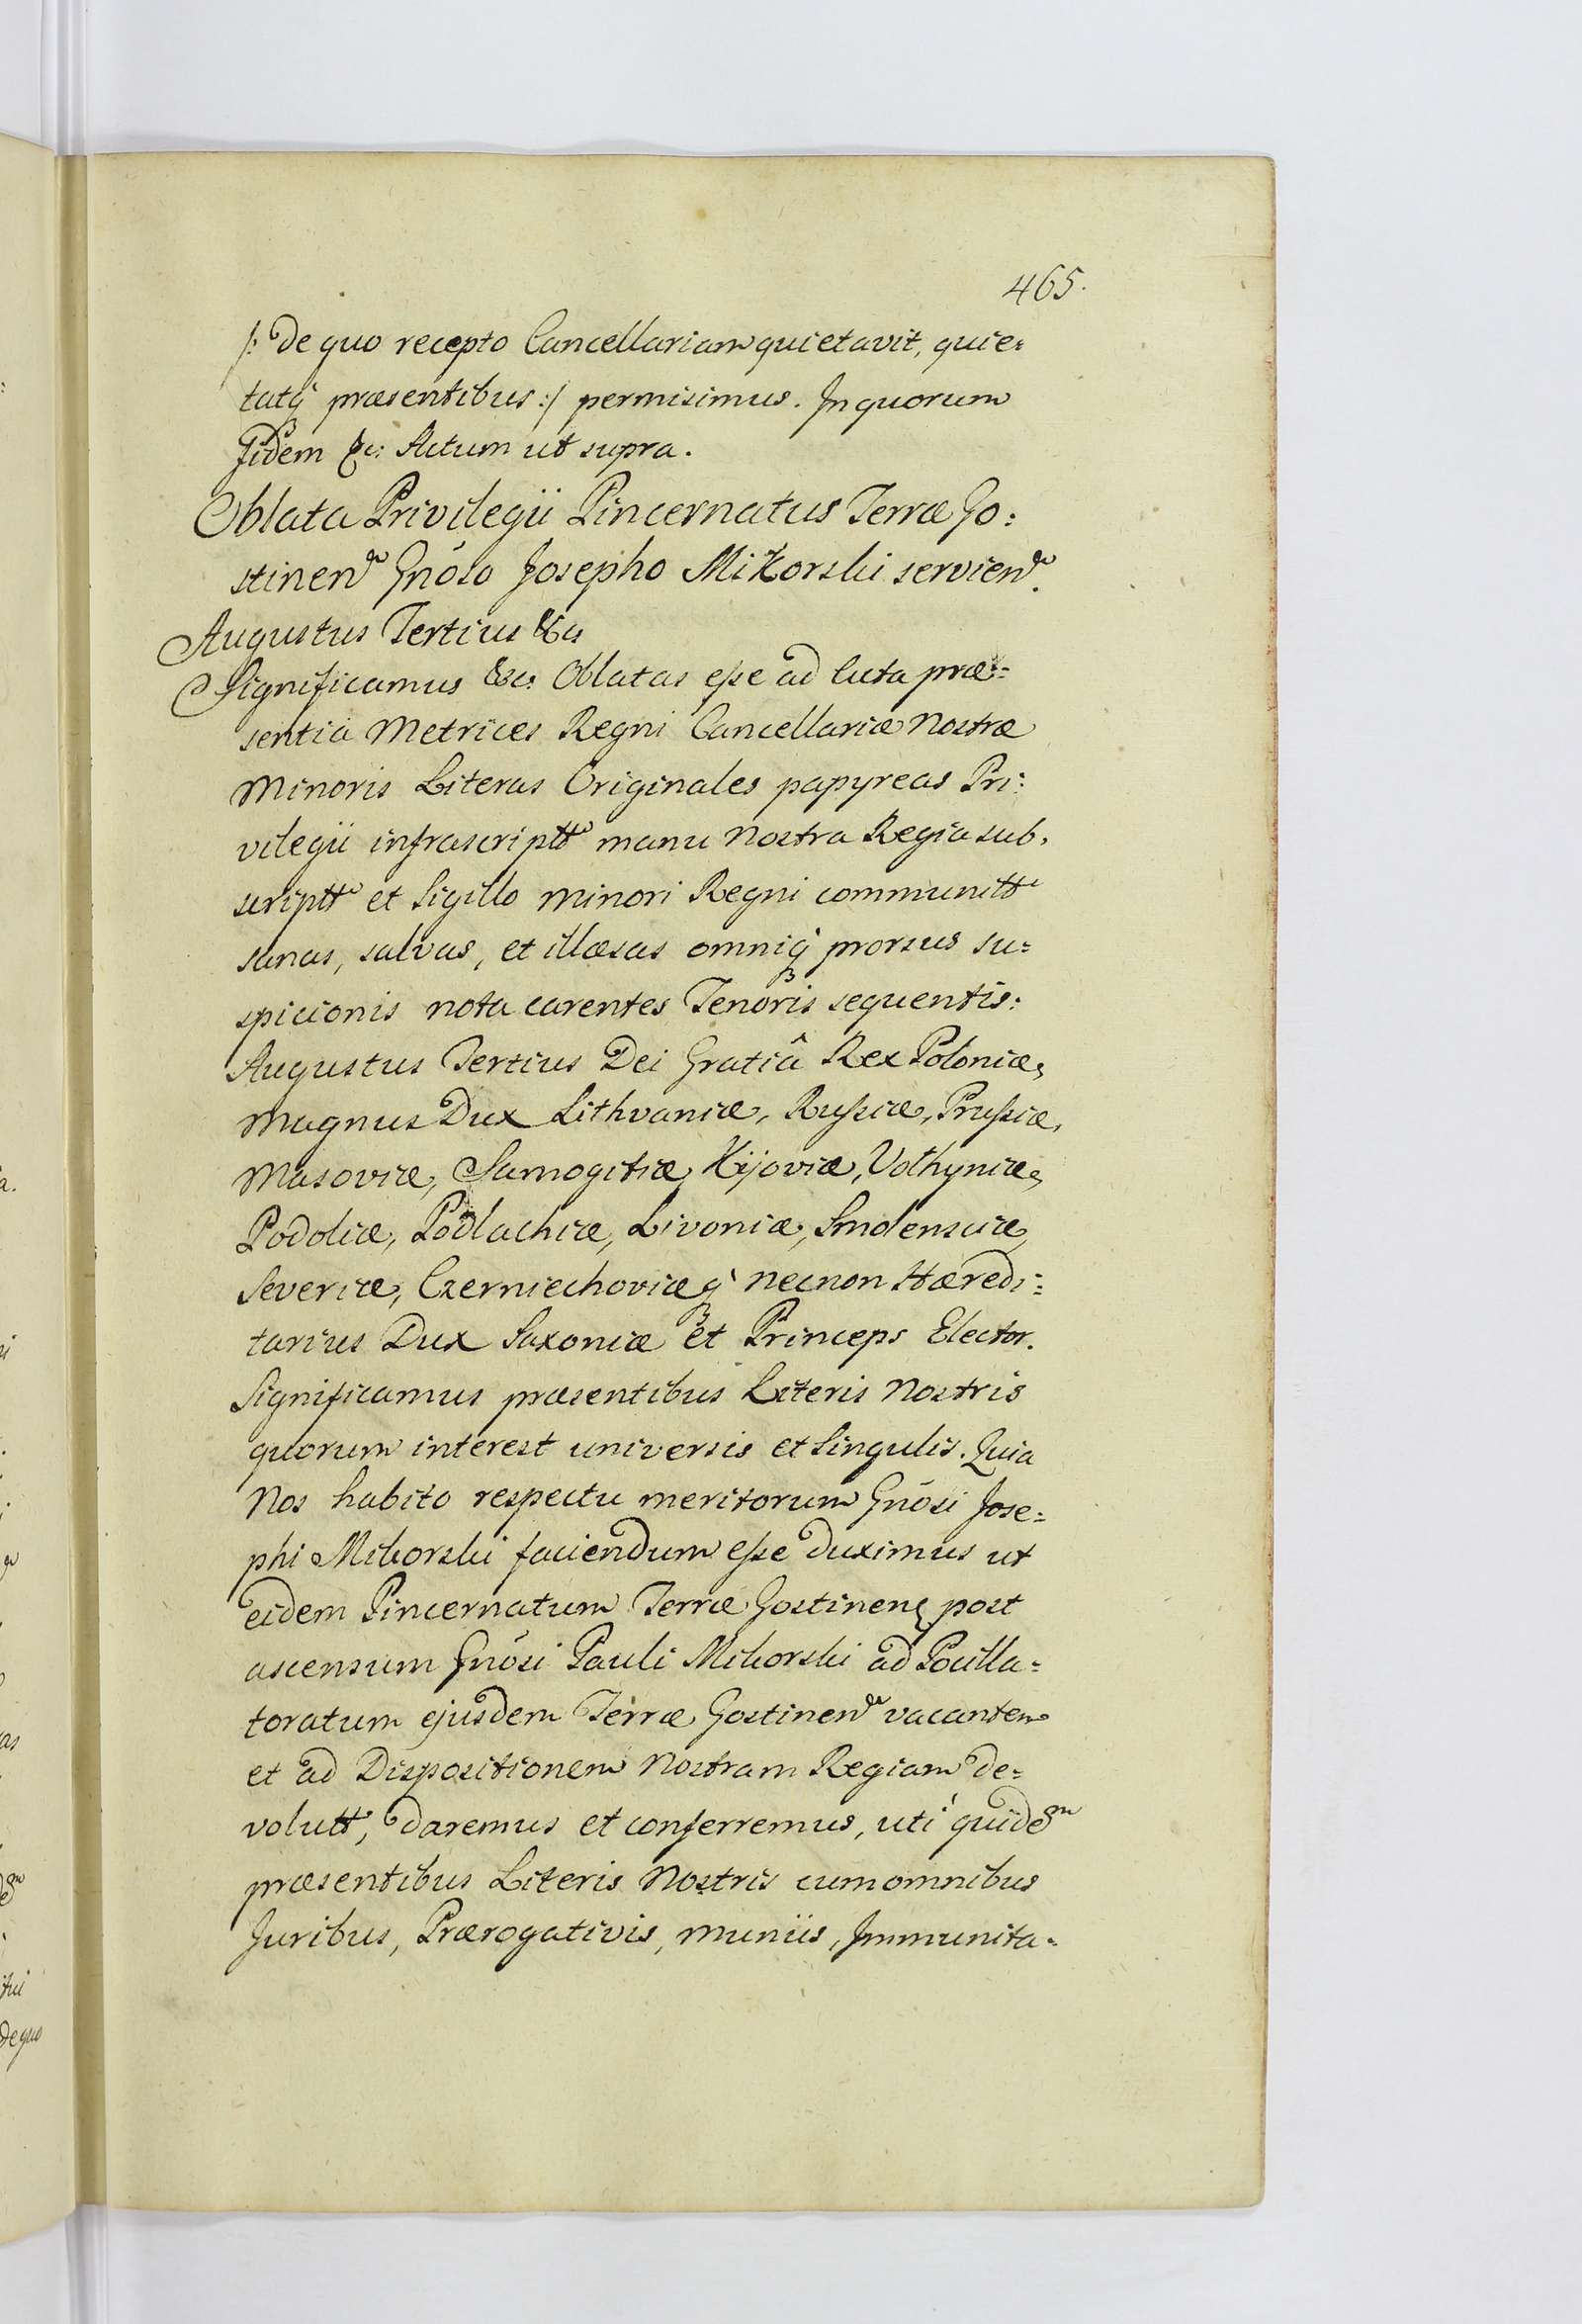 465.
/: de quo recepto Cancellariam quietavit, quie=
tatq̀ præsentibus :/ permisimus. In quorum
Fidem &c: Actum ut supra.
Oblata Privilegii Pincernatus Terræ Go=
stinen͠ Gnõso Josepho Mikorski servien͠.
Augustus Tertius &c
Significamus &c: Oblatas eſse ad Acta præ=
sentia Metrices Regni Cancellariæ Nostræ
Minoris Literas Originales papyreas Pri=
vilegii infrascriptt͠ manu Nostra Regia sub=
scriptt͠ et Sigillo minori Regni communitt͠
sanas, salvas, et illæsas omniq̀ prorsus su=
spicionis nota carentes Tenoris sequentis:
Augustus Tertius Dei Gratiâ Rex Poloniæ,
Magnus Dux Lithvaniæ, Ruſsiæ, Pruſsiæ,
Masoviæ, Samogitiæ, Kijoviæ, Volhyniæ,
Podoliæ, Podlachiæ, Livoniæ, Smolensciæ,
Severiæ, Czerniechoviæq̀ necnon Hæredi=
tarius Dux Saxoniæ et Princeps Elector.
Significamus præsentibus Literis Nostris
quorum interest universis et singulis. Quia
Nos habito respectu meritorum Gnõsi Jose=
phi Mikorski faciendum eſse duximus ut
eidem Pincernatum Terræ Gostinen͠ post
ascensum Gnõsi Pauli Mikorski ad Pocilla=
toratum ejusdem Terræ Gostinen͠ vacantem
et ad Dispositionem Nostram Regiam de=
volutt͠, daremus et conferremus, uti quidem
præsentibus Literis Nostris cum omnibus
Juribus, Prærogativis, muniis, Immunita=